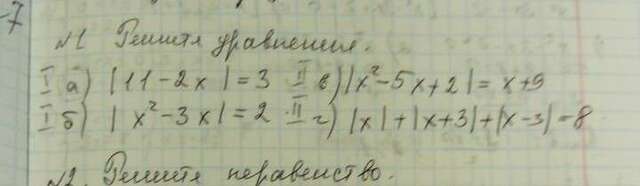 -7
№1 Решите уравнения.
I а) |11-2x|=3 II в) |x²-5x+2|=x+9
I б) |x²-3x|=2 II г) |x|+|x+3|+|x-3|=8
№2. Решите неравенство.